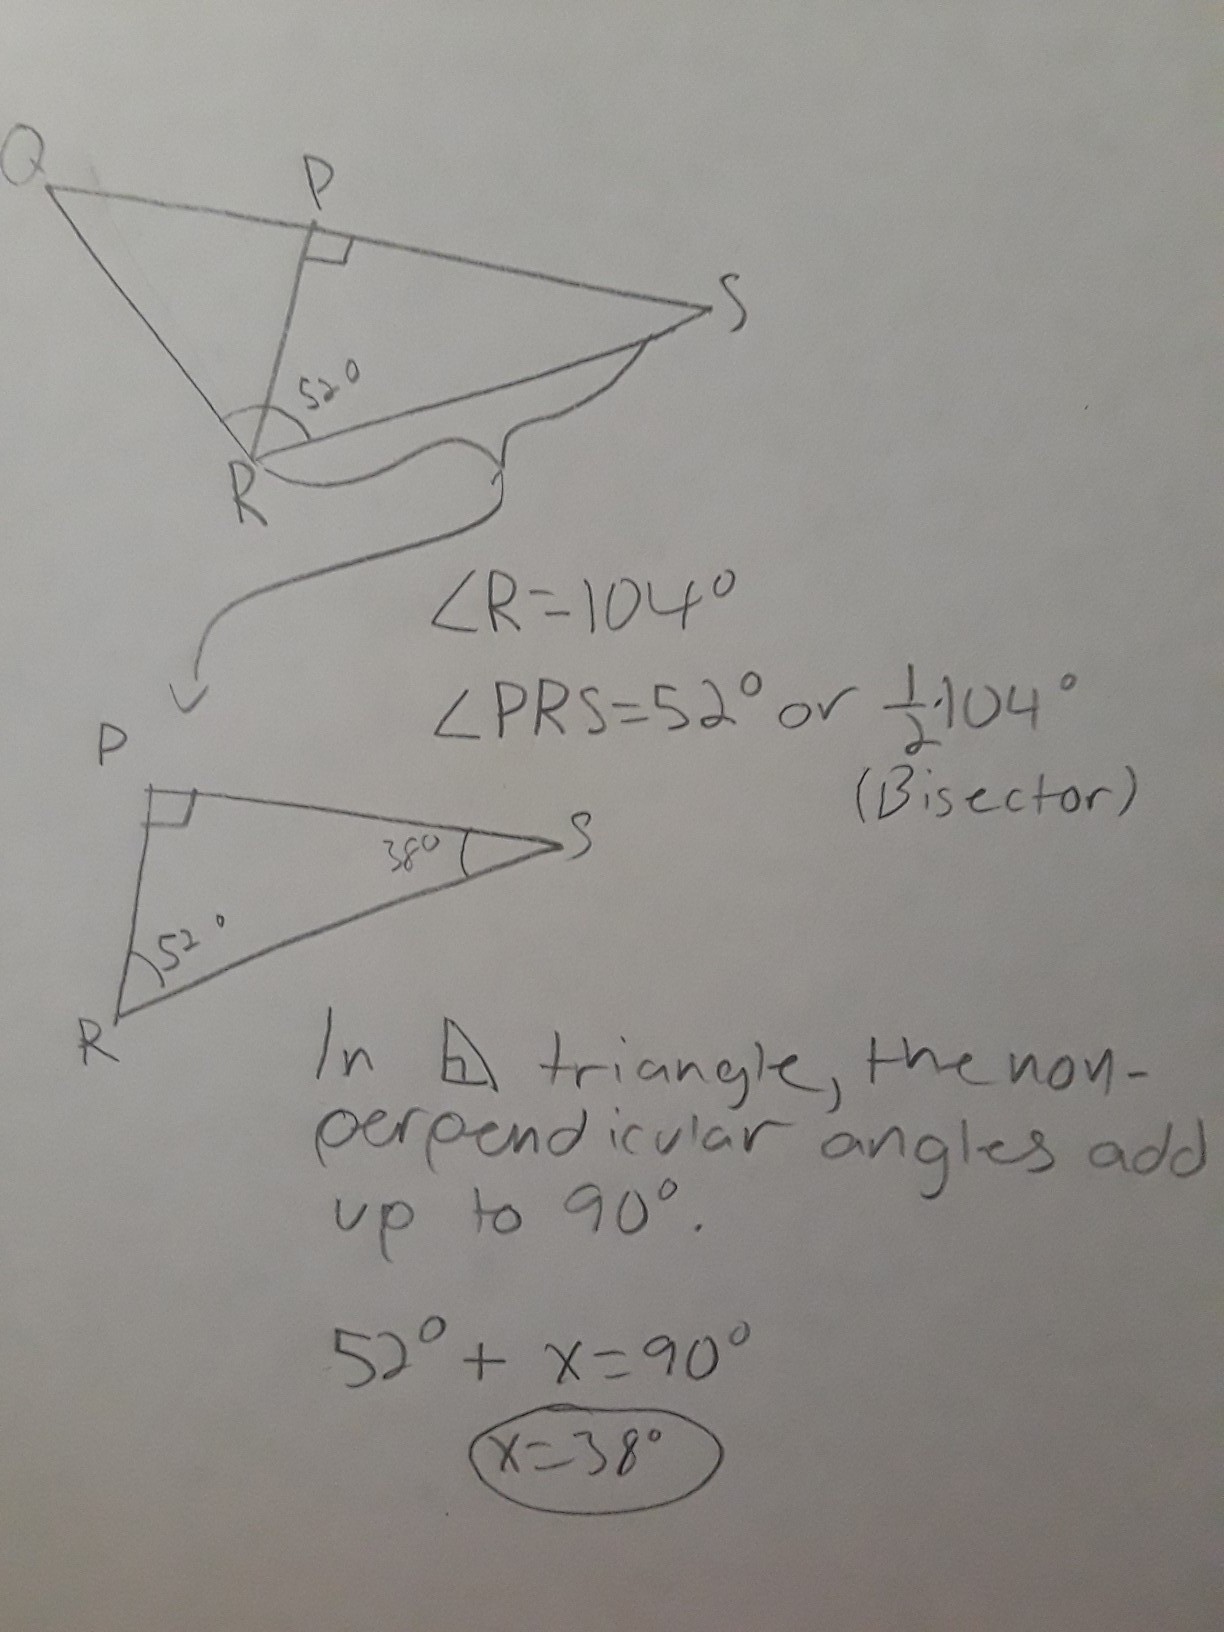 Q
P
S
52°
R
∠R=104°
∠PRS=52° or 1/2·104°
(Bisector)
P
38°
S
52°
R
In triangle, the non-
perpendicular angles add
up to 90°.
52° + x=90°
x=38°